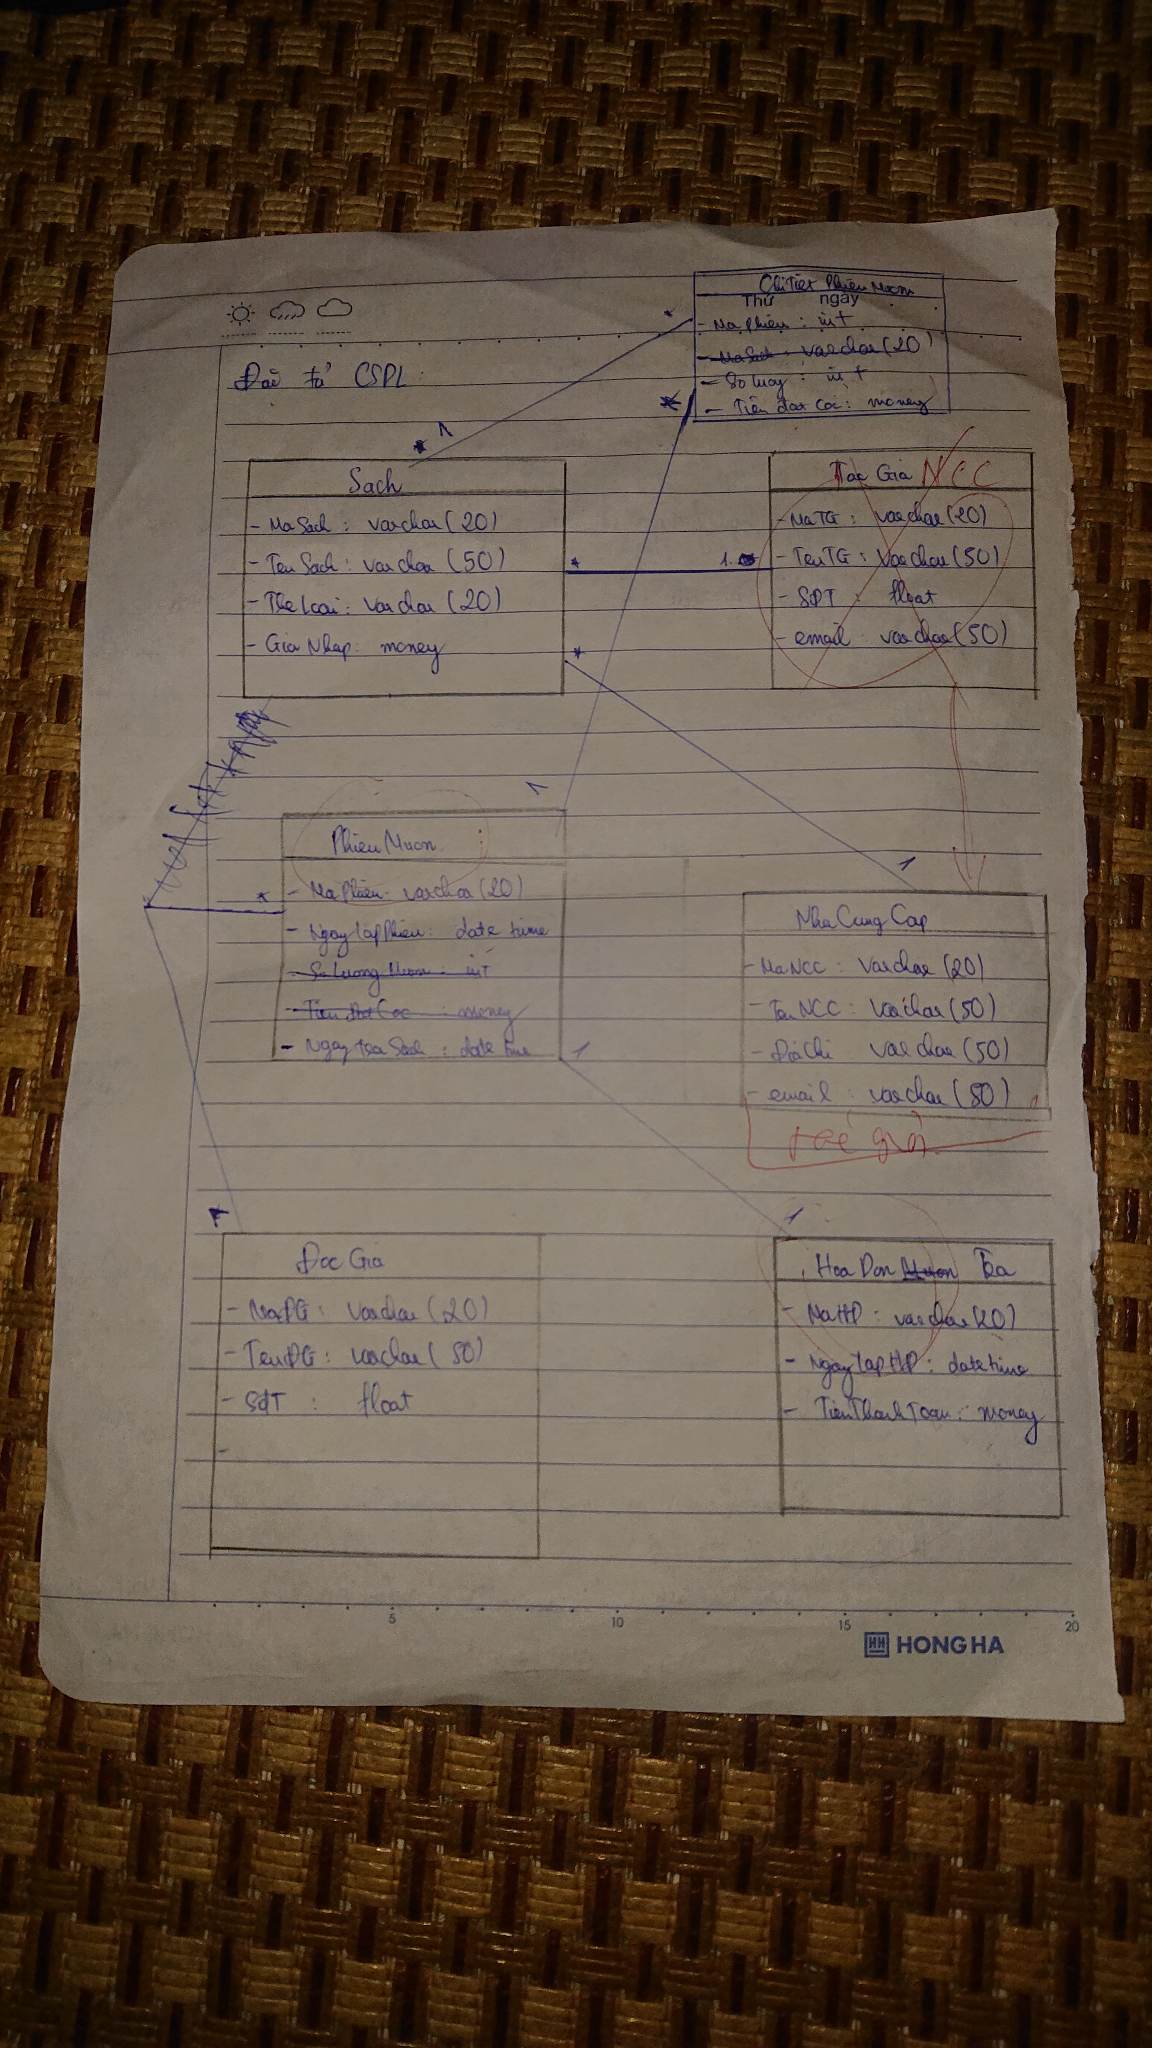 Chi Tiết Phiếu Mượn
Thứ ngày
- Ma Phieu : int
- Ma Sach : varchar (20)
- So luong : int
- Tiền đặt cọc : money
Đặc tả CSDL :
* 1
*
*
Sach
- Ma Sach : varchar (20)
- Ten Sach : varchar (50)
- The Loai : varchar (20)
- Gia Nhap : money
* 1
*
Tac Gia NCC
- Ma TG : varchar (20)
- Ten TG : varchar (50)
- SĐT : float
- email : varchar (50)
1
1
Phieu Muon :
* - Ma Phieu : varchar (20)
- Ngay lap Phieu : date time
- So Luong Muon : int
- Tien Dat Coc : money
- Ngay tra Sach : date time
1
Nha Cung Cap
- Ma NCC : varchar (20)
- Ten NCC : varchar (50)
- Địa Chi varchar (50)
- email : varchar (50)
1
1
Đoc Gia
- Ma ĐG : varchar (20)
- Ten ĐG : varchar (50)
- SĐT : float
-
Hoa Don Muon Tra
- Ma HD : varchar (20)
- Ngay lap HD : date time
- Tien Thanh Toan : money
5 10 15 20
HONG HA